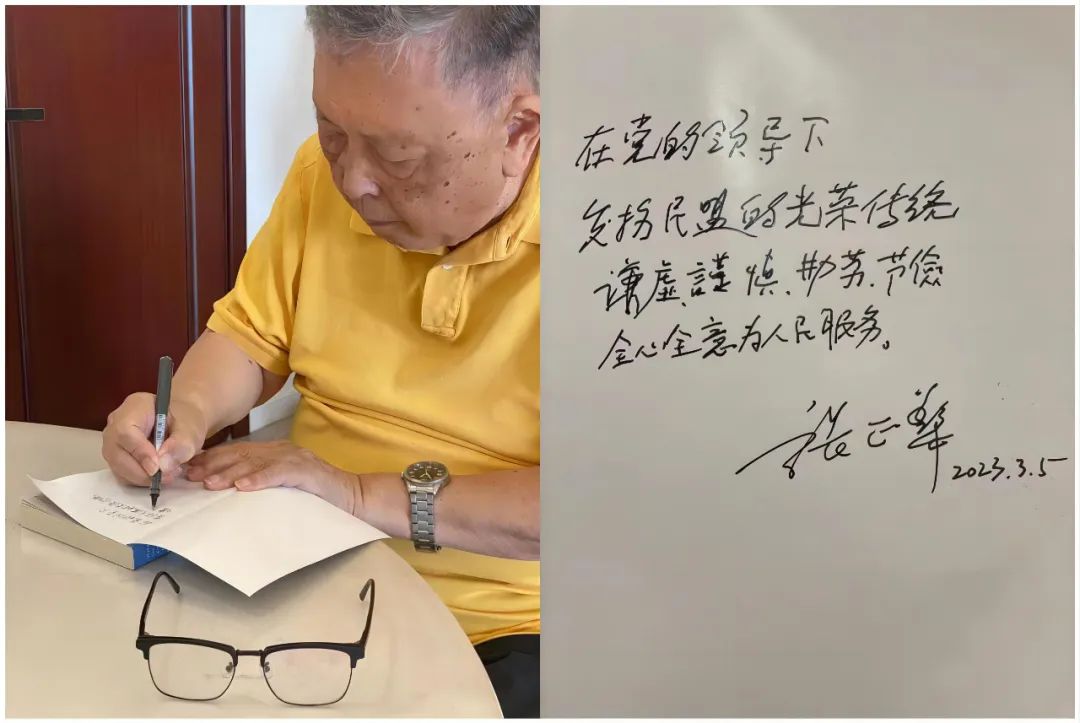 在党的领导下
发扬民盟的光荣传统
谦虚、謹慎、勤劳、节儉
全心全意为人民服务。
张正
2023.3.5